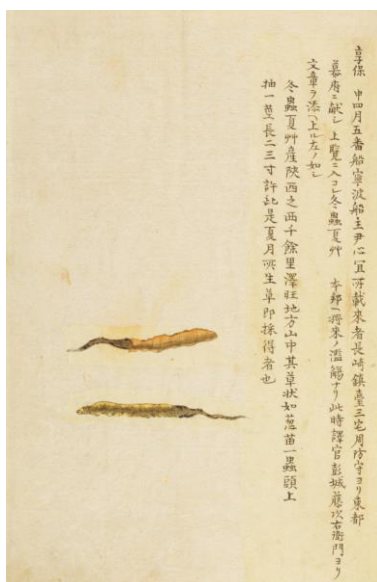 享保 申四月五番船寧波船主尹心宜所載來者長崎鎮臺三宅周防守ヨリ東都
幕府ニ献シ 上覧ニ入コレ冬蟲夏艸 本邦ヘ將來ノ濫觴ナリ此時譯官彭城藤次右衛門ヨリ
文章ヲ添ヘ上ル左ノ如シ
冬蟲夏艸産陝西之西千餘里澤旺地方山中其草状如葱苗一蟲頭上
抽一莖長二三寸許此是夏月所生草即採得者也